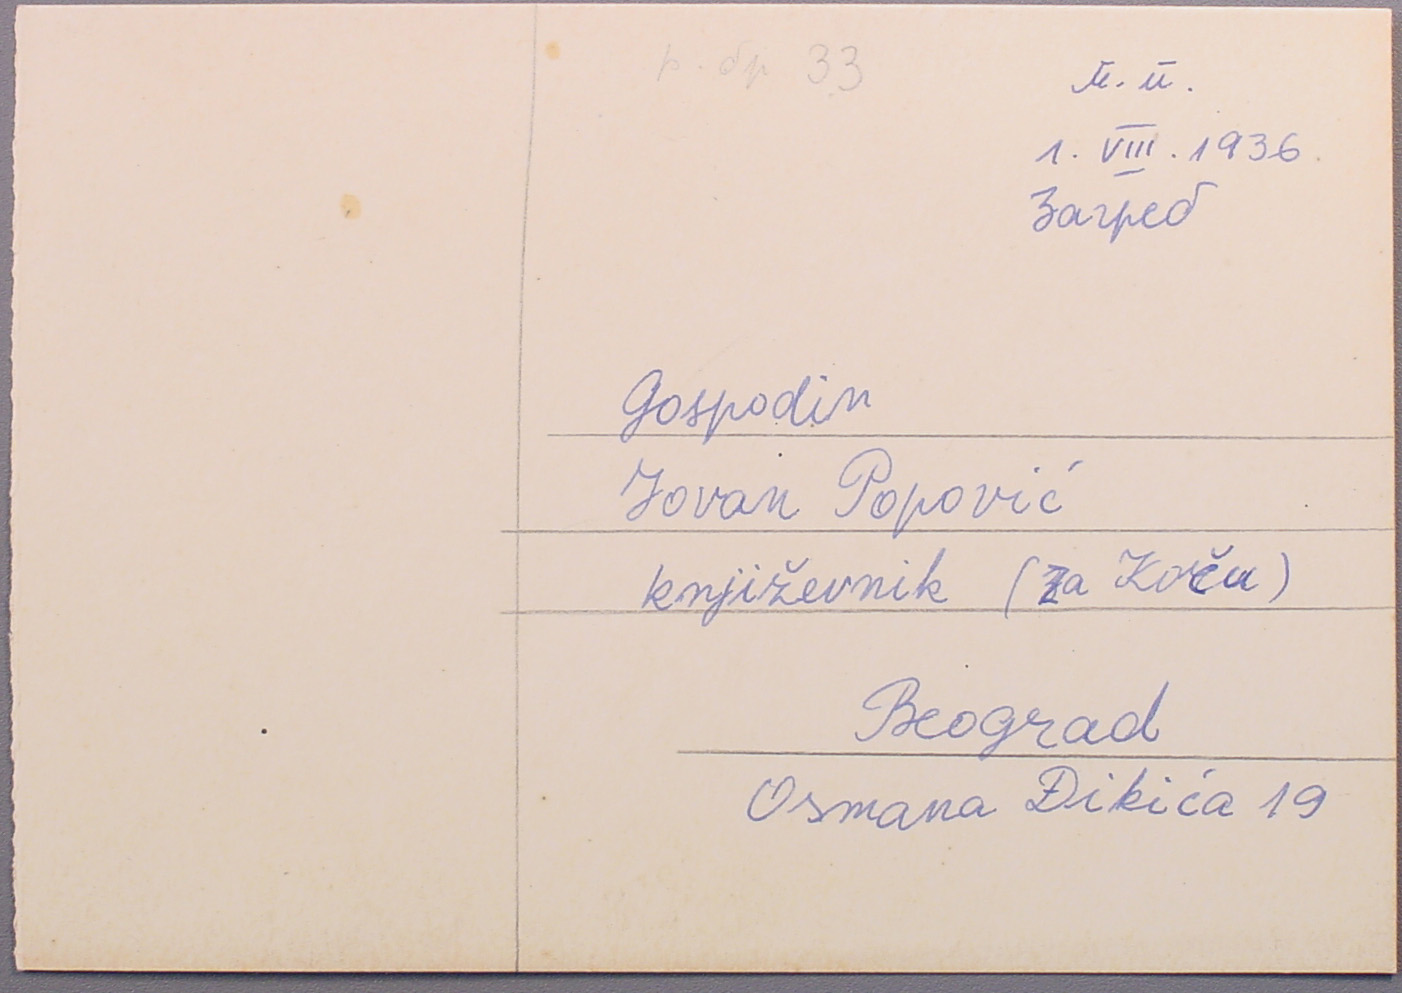 р. бр 33
м. п.
1. VIII. 1936.
Загреб
Gospodin
Jovan Popović
književnik (za Koču)
Beograd
Osmana Đikića 19